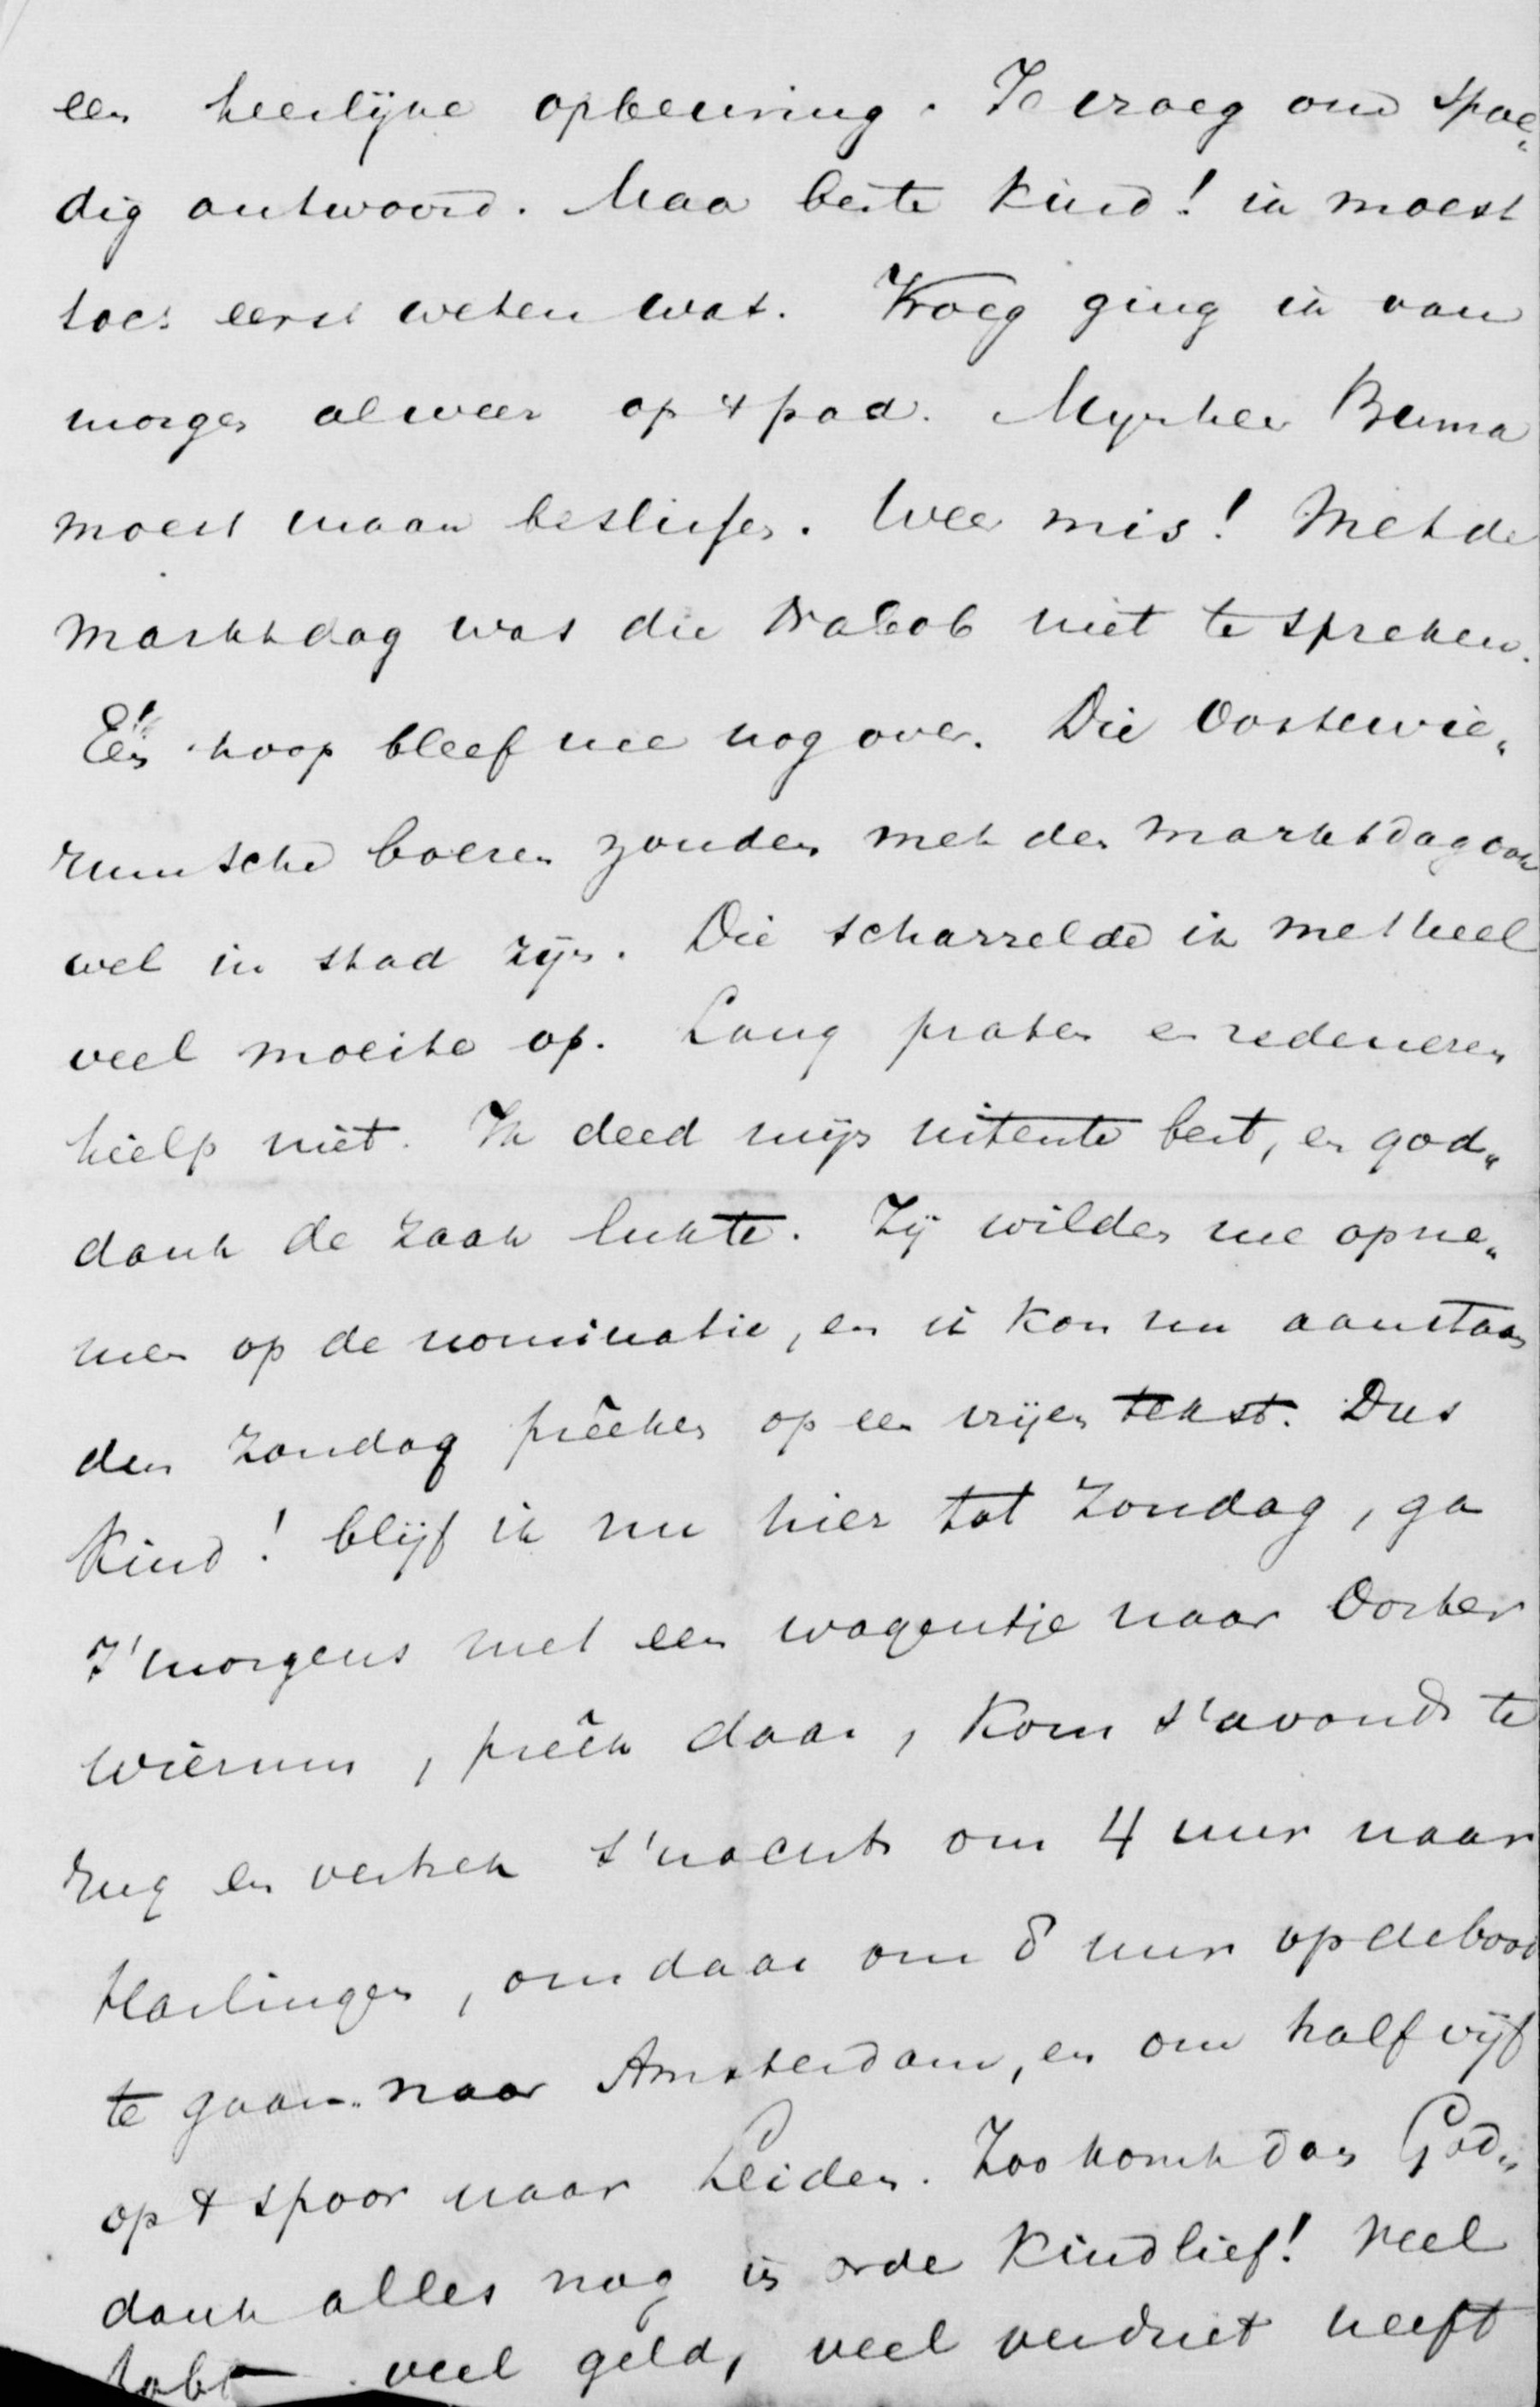 een heerlijke opbeuring. Je vroeg om spoe„
dig antwoord. Maar beste kind! ik moest
toch eerst weten wat. Vroeg ging ik van
morgen alweer op 't pad. Mynheer Buma
moest maar beslissen. Weer mis! Met de
marktdag was die Nabob niet te spreken.
Eén hoop bleef me nog over. Die Oosterwie„
rumsche boeren zouden met den marktdag ook
wel in stad zijn. Die scharrelde ik met heel
veel moeite op. Lang praten en redeneren
hielp niet. Ik deed mijn uiterste best, en god„
dank de zaak lukte. Zij wilden me opne„
men op de nominatie, en ik kon nu aanstaan
den Zondag prêeken op een vrijen tekst. Dus
kind! blijf ik nu hier tot Zondag, ga
s'morgens met een wagentje naar Ooster
wierum, prêek daar, kom s'avonds te
rug en vertrek s'nachts om 4 uur naar
Harlingen, om daar om 8 uur op de boot
te gaan naar Amsterdam, en om half vijf
op 't spoor naar Leiden. Zoo komt dan God„
dank alles nog in orde kindlief! Heel
veel geld, veel verdriet heeft